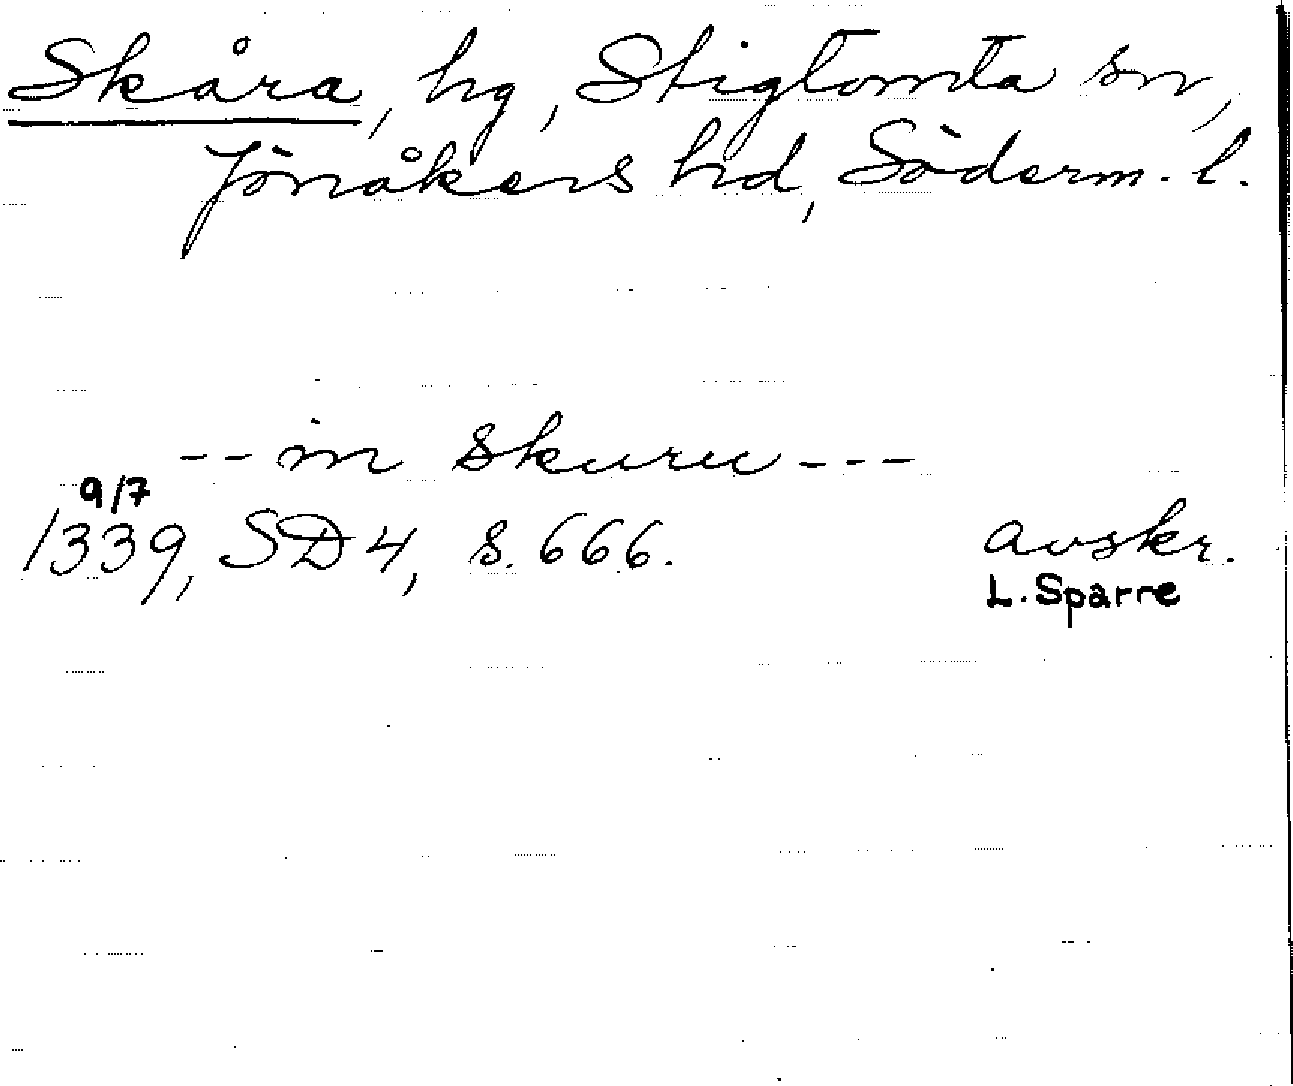 Skåra, hg, Stigtomta sn,
Jönåkers hd, Söderm. l.
-- in Skuru ---
9/7
1339, SD 4, s. 666. avskr.
L. Sparre